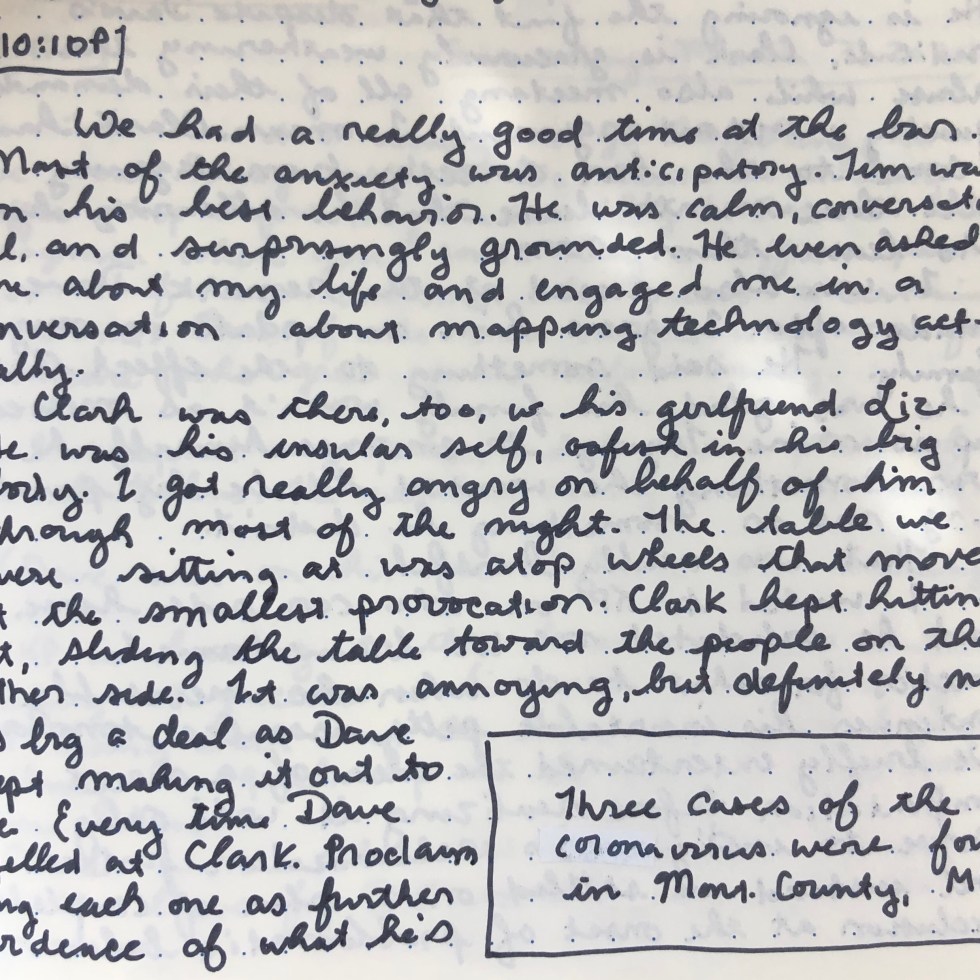 10:10P]
We had a really good time at the bar
Most of the anxiety was anticipatory. Tim wa
n his best behavior. He was calm, conversat
l, and surprisingly grounded. He even asked
me about my life and engaged me in a
nversation about mapping technology act-
ally.
Clark was there, too, w/ his girlfriend Liz
He was his insular self, in his big
body. I got really angry on behalf of him
through most of the night. The table we
were sitting at was atop wheels that move
t the smallest provocation. Clark kept hittin
t, sliding the table toward the people on the
ther side. It was annoying, but definitely n
s big a deal as Dave
ept making it out to
e. Every time Dave
elled at Clark. Proclaim
ng each one as further
idence of what he's
Three cases of the
coronavirus were fou
in Mont. County, M